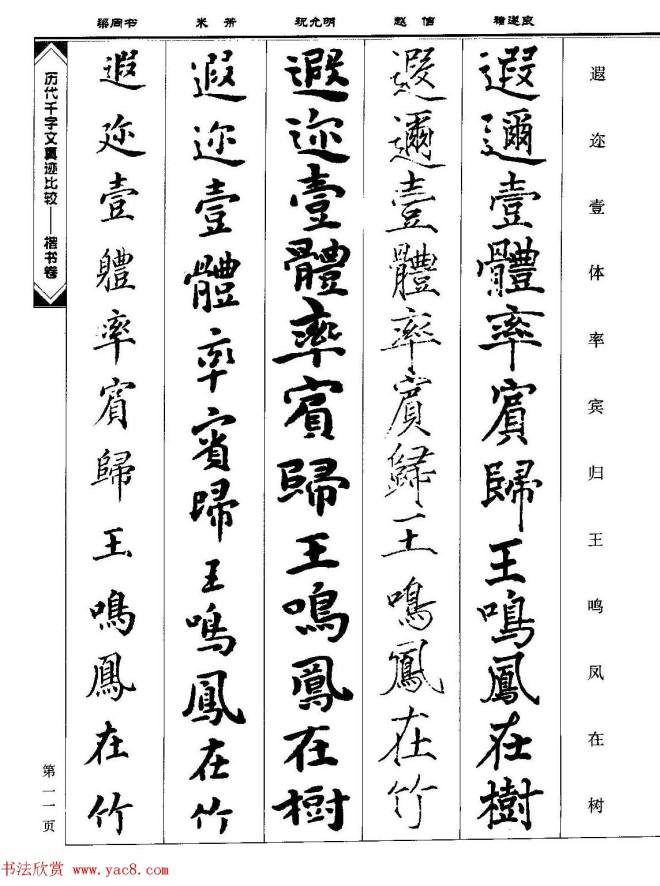 遐迩壹体率宾归王鸣凤在树
褚遂良
遐邇壹體率賓歸王鳴鳳在樹
赵佶
遐邇壹體率賓歸王鳴鳳在竹
祝允明
遐迩壹體率賓歸王鳴鳳在樹
米芾
遐迩壹體率賓歸王鳴鳳在竹
梁同书
遐迩壹軆率賓歸王鳴鳳在竹
历代千字文真迹比较——楷书卷
第一一页
书法欣赏 www.yac8.com